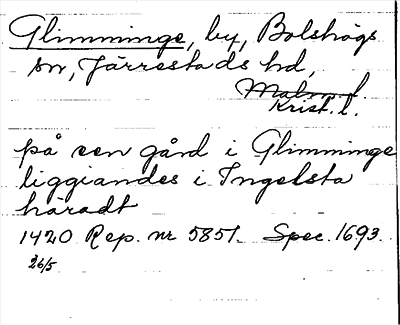 Glimminge, by, Bolshögs
sn, Järrestads hd,
Malm. l.
Krist. l.
på een gård i Glimminge
liggiandes i Ingelsta
häradt
1420 Rep. nr 5851. Spec. 1693.
26/5